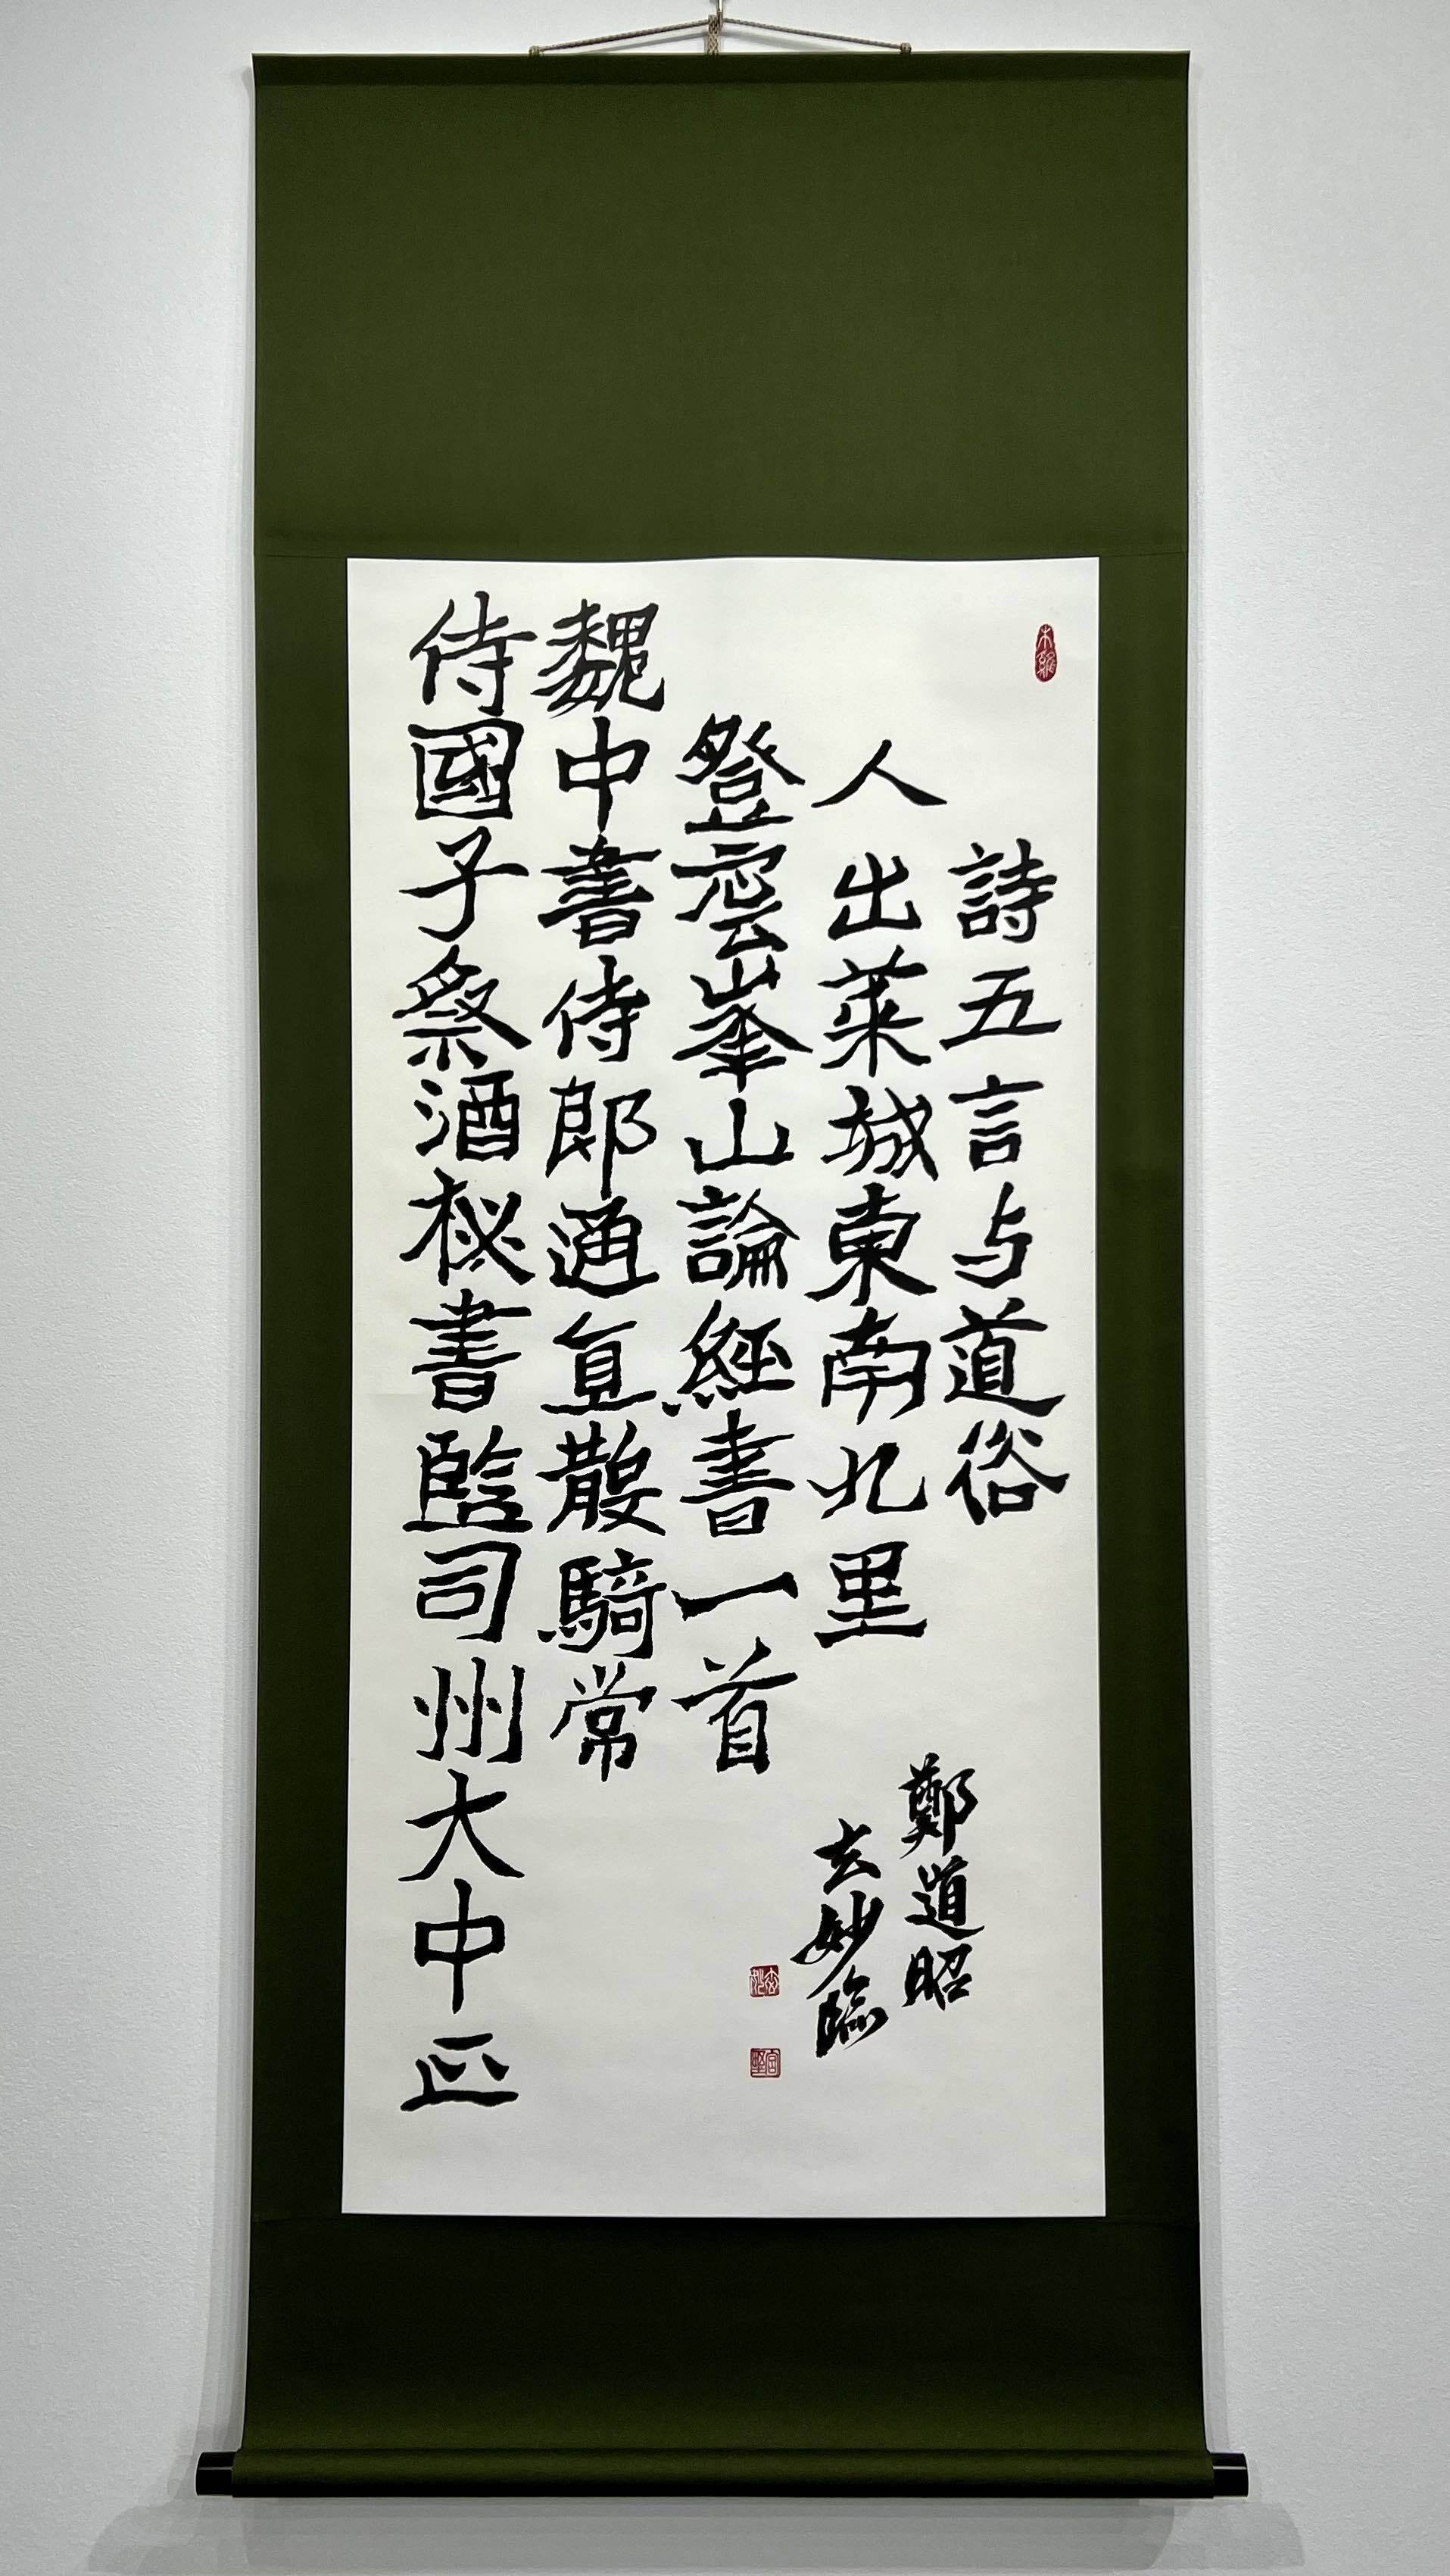 詩五言与道俗
人出萊城東南九里
登雲峯山論經書一首
魏中書侍郎通直散騎常
侍國子祭酒秘書監司州大中正
鄭道昭
玄妙臨